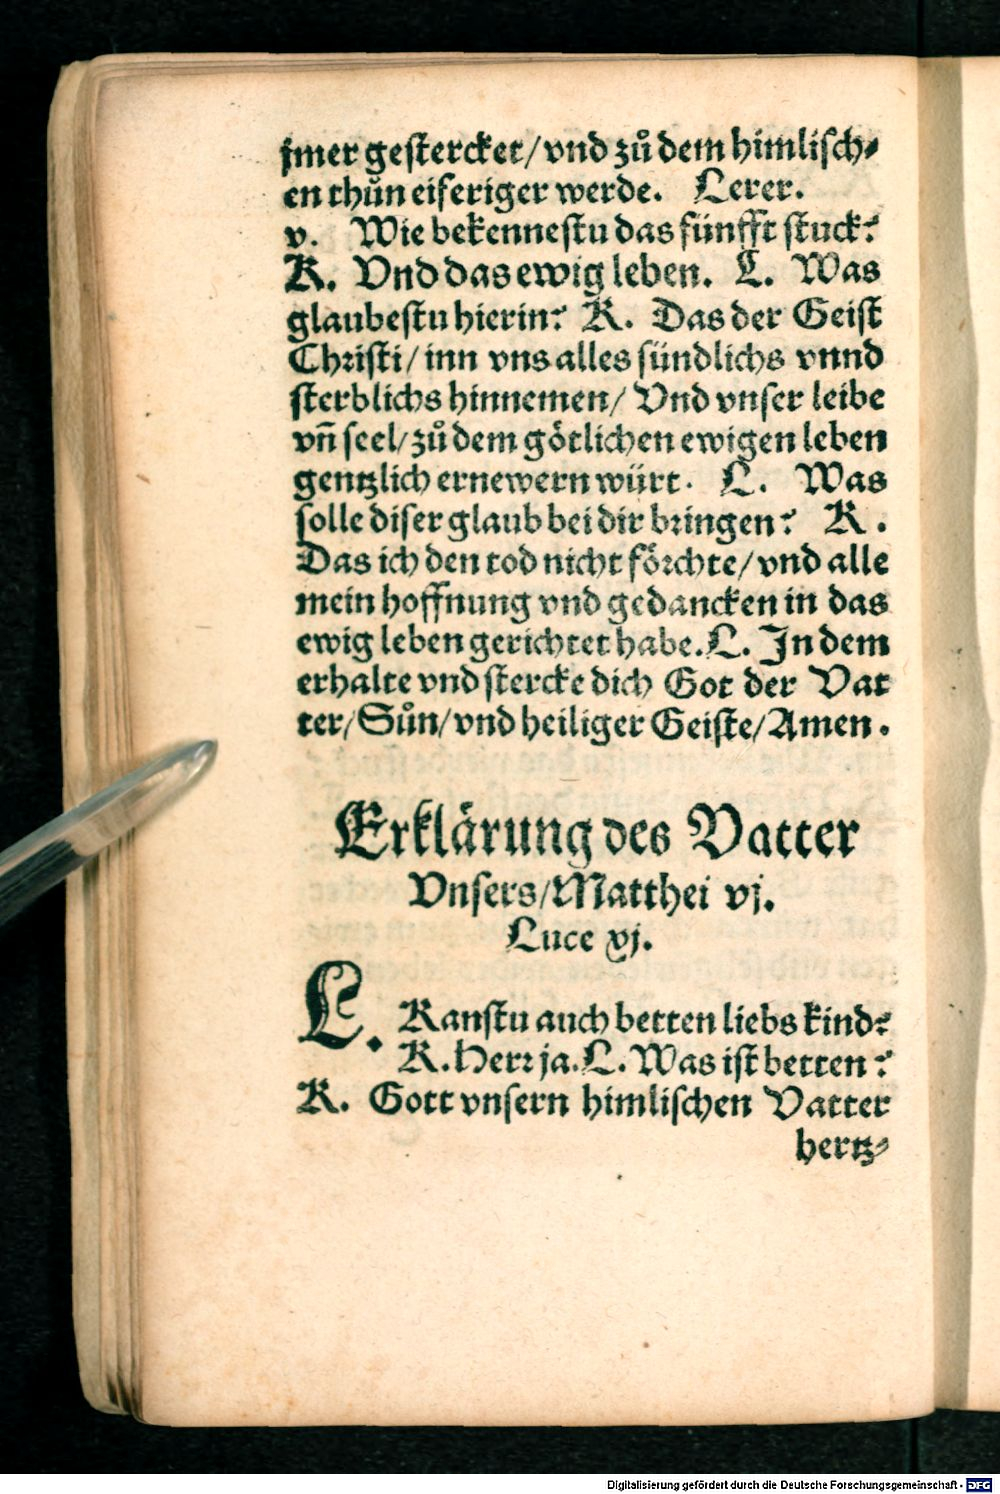 jmer gestercket/ vnd zů dem himlisch⸗
en thůn eiferiger werde. Lerer.
v. Wie bekennestu das fünfft stuck?
K. Vnd das ewig leben. L. Was
glaubestu hierin? K. Das der Geist
Christi/ inn vns alles sündlichs vnnd
sterblichs hinnemen/ Vnd vnser leibe
vñ seel/ zů dem götlichen ewigen leben
gentzlich ernewern würt. L. Was
solle diser glaub bei dir bringen? K.
Das ich den tod nicht förchte/ vnd alle
mein hoffnung vnd gedancken in das
ewig leben gerichtet habe. L. In dem
erhalte vnd stercke dich Got der Vat
ter/ Sůn/ vnd heiliger Geiste/ Amen.
Erklärung des Vatter
Vnsers/ Matthei vj.
Luce xj.
L. Kanstu auch betten liebs kind?
K. Herr ja. L. Was ist betten?
K. Gott vnsern himlischen Vatter
hertz⸗
Digitalisierung gefördert durch die Deutsche Forschungsgemeinschaft - DFG